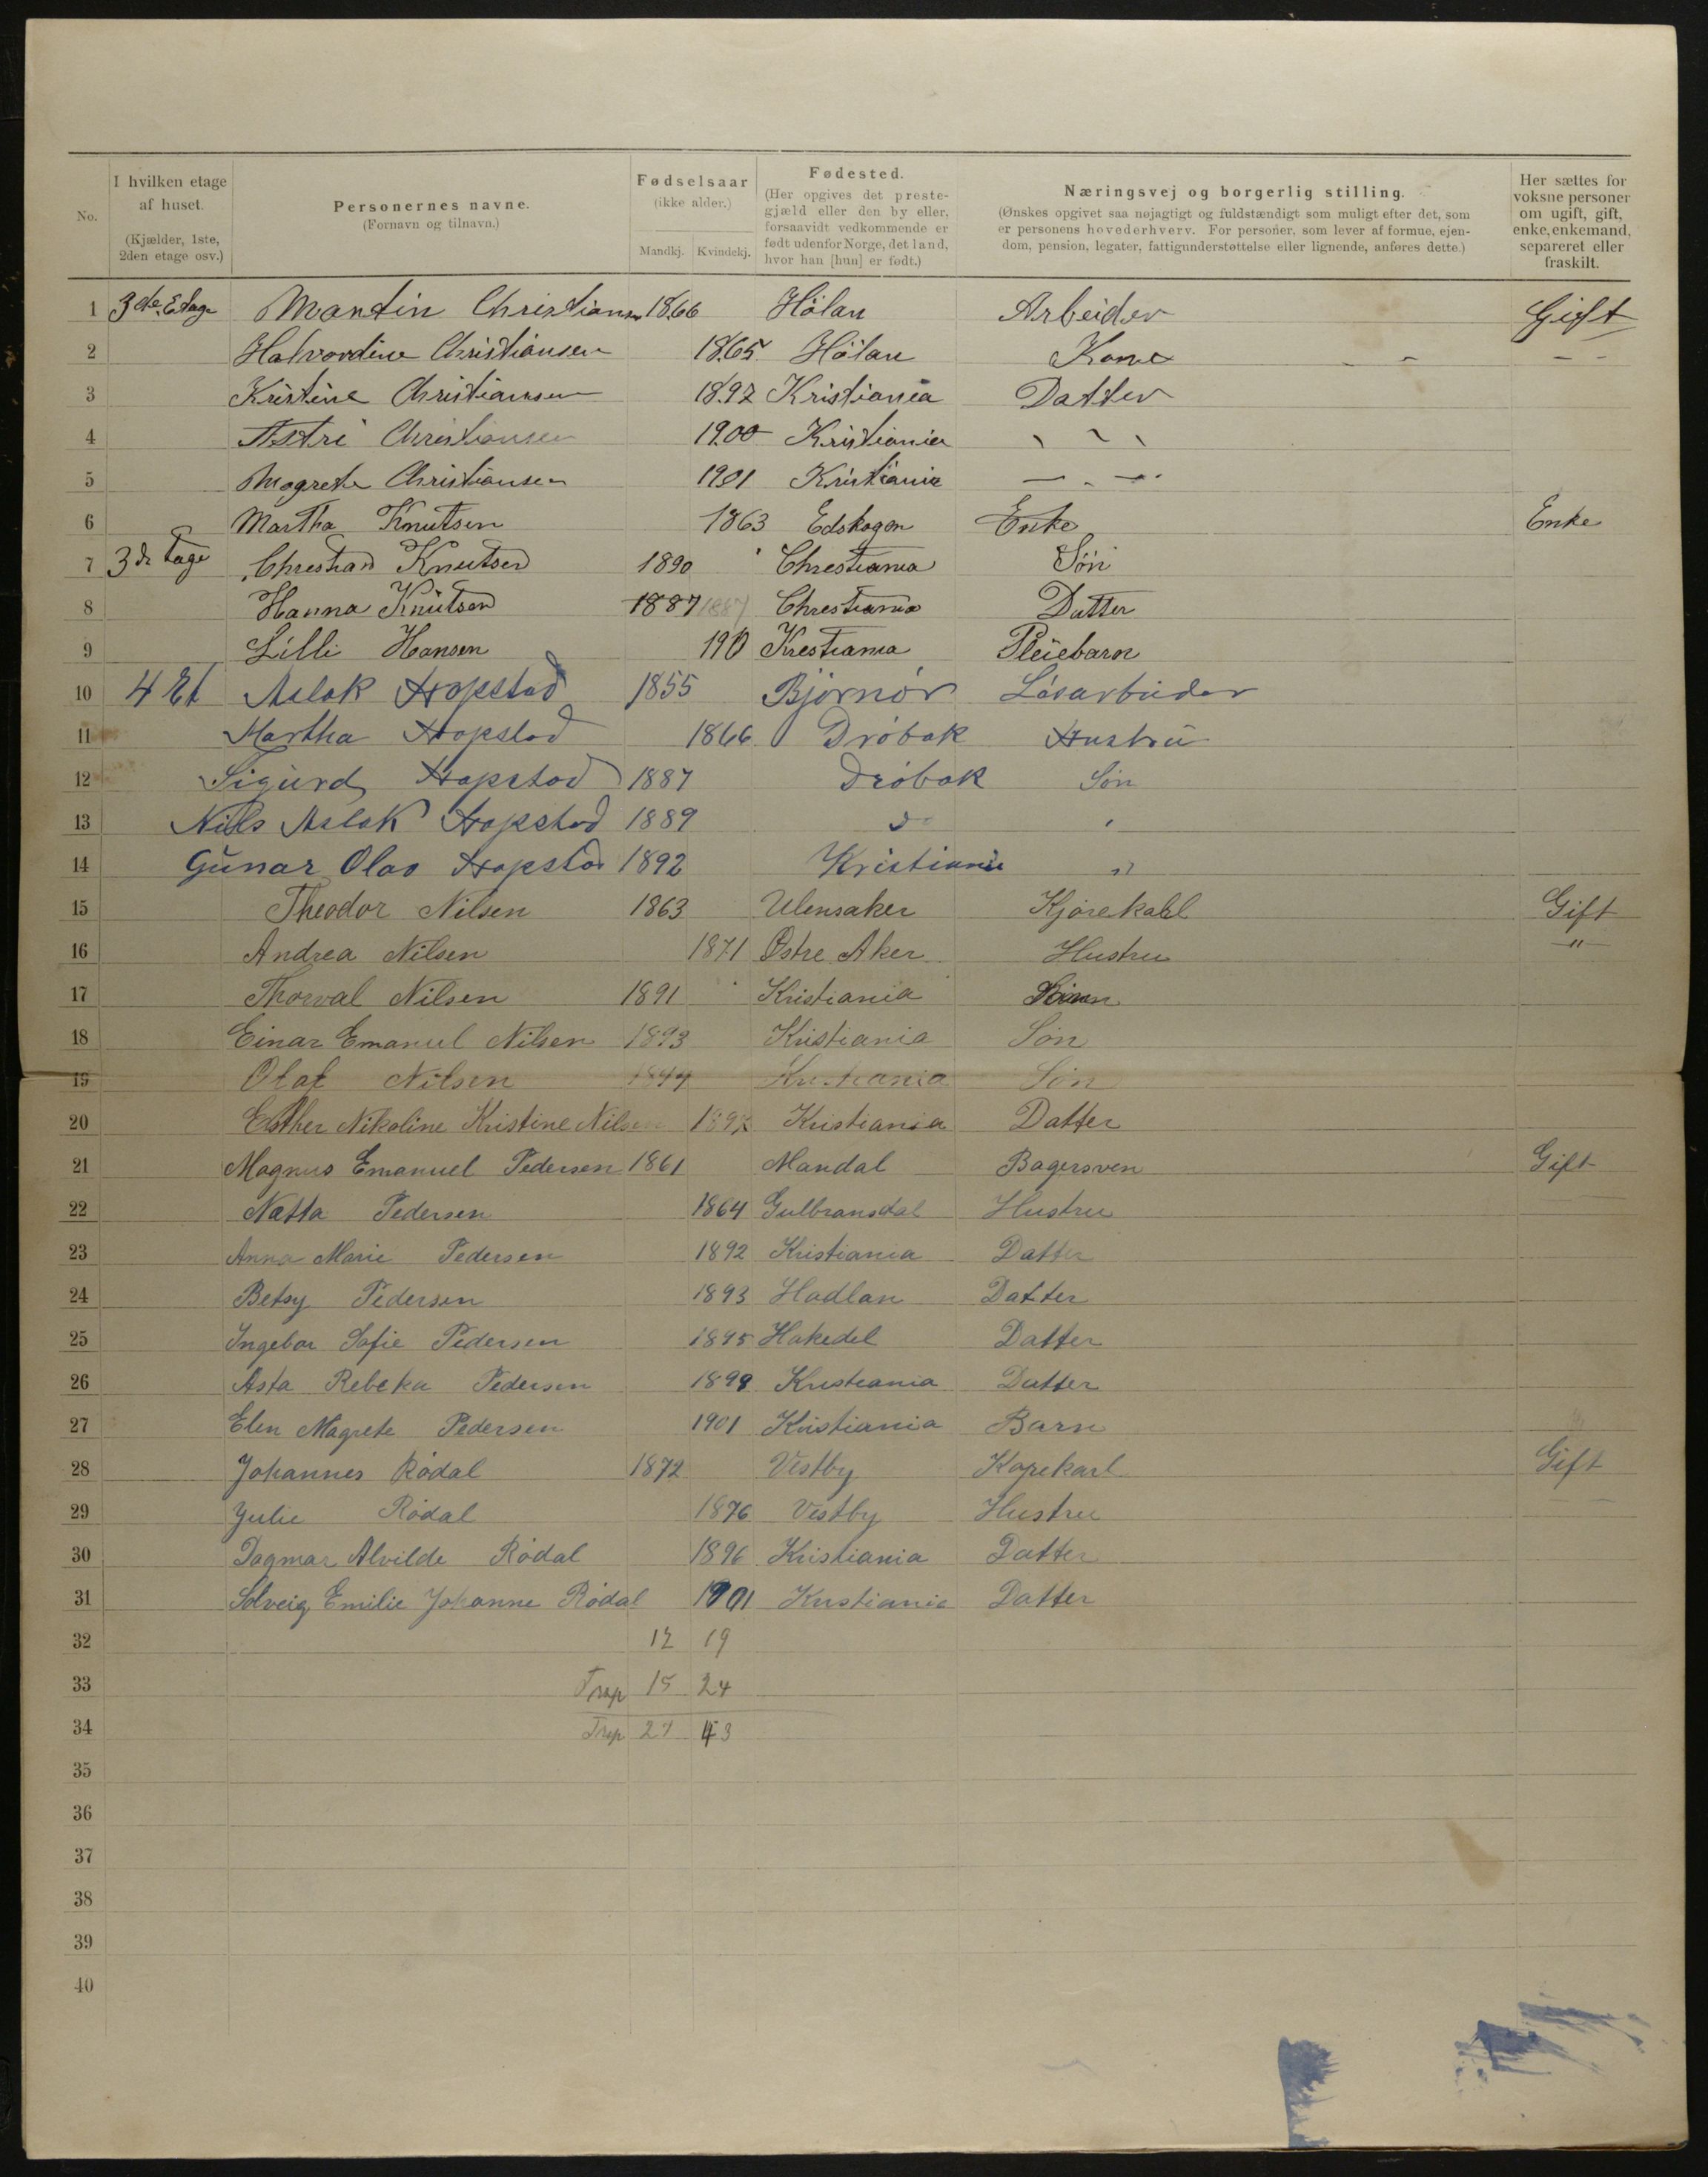 No. | I hvilken etage af huset. (Kjælder, 1ste, 2den etage osv.) | Personernes navne. (Fornavn og tilnavn.) | Fødselsaar (ikke alder.) Mandkj. Kvindekj. | Fødested. (Her opgives det prestegjæld eller den by eller, forsaavidt vedkommende er født udenfor Norge, det land, hvor han [hun] er født.) | Næringsvej og borgerlig stilling. (Ønskes opgivet saa nøjagtigt og fuldstændigt som muligt efter det, som er personens hovederhverv. For personer, som lever af formue, ejendom, pension, legater, fattigunderstøttelse eller lignende, anføres dette.) | Her sættes for voksne personer om ugift, gift, enke, enkemand, separeret eller fraskilt.
1 3de Etage Martin Christiansen 1866 Hölan Arbeider Gift
2 Halvordine Christiansen 1865 Hölan Kone - -
3 Kristine Christiansen 1897 Kristiania Datter
4 Astri Christiansen 1900 Kristiania " "
5 Magrete Christiansen 1901 Kristiania — " —
6 Martha Knutsen 1863 Edskogen Enke Enke
7 3de Etage Chrestian Knutsen 1890 Chrestiania Søn
8 Hanna Knutsen 1887 1887 Chrestiania Datter
9 Lilli Hansen 190 Krestiania Pleiebarn
10 4 Et Aslak Hopstad 1855 Bjørnør Løsarbeider
11 Martha Hopstad 1866 Drøbak Hustru
12 Sigurd Hopstad 1887 Drøbak Søn
13 Nils Aslak Hopstad 1889 " "
14 Gunar Olav Hopstad 1892 Kristiania "
15 Theodor Nilsen 1863 Ulensaker Kjørekahl Gift
16 Andrea Nilsen 1871 Østre Aker Hustru — " —
17 Thorval Nilsen 1891 Kristiania
18 Einar Emanuel Nilsen 1893 Kristiania Søn
19 Olaf Nilsen Kristiania Søn
20 Esther Nikoline Kristine Nilsen 1897 Kristiania Datter
21 Magnus Emanuel Pedersen 1861 Mandal Bagersven Gift
22 Natta Pedersen 1864 Gulbransdal Hustru
23 Anna Marie Pedersen 1892 Kristiania Datter
24 Betsy Pedersen 1893 Hadlan Datter
25 Ingebor Sofie Pedersen 1895 Hakedel Datter
26 Asta Rebeka Pedersen 1899 Kristiania Datter
27 Elen Magrete Pedersen 1901 Kristiania Barn
28 Johannes Rødal 1872 Vestby Kørekarl Gift
29 Julie Rødal 1876 Vestby Hustru — —
30 Dagmar Alvilde Rødal 1896 Kristiania Datter
31 Solveig Emilie Johanne Rødal 1901 Kristiania Datter
32 12 19
33 Trsp 15 24
34 Trsp 27 43
35
36
37
38
39
40